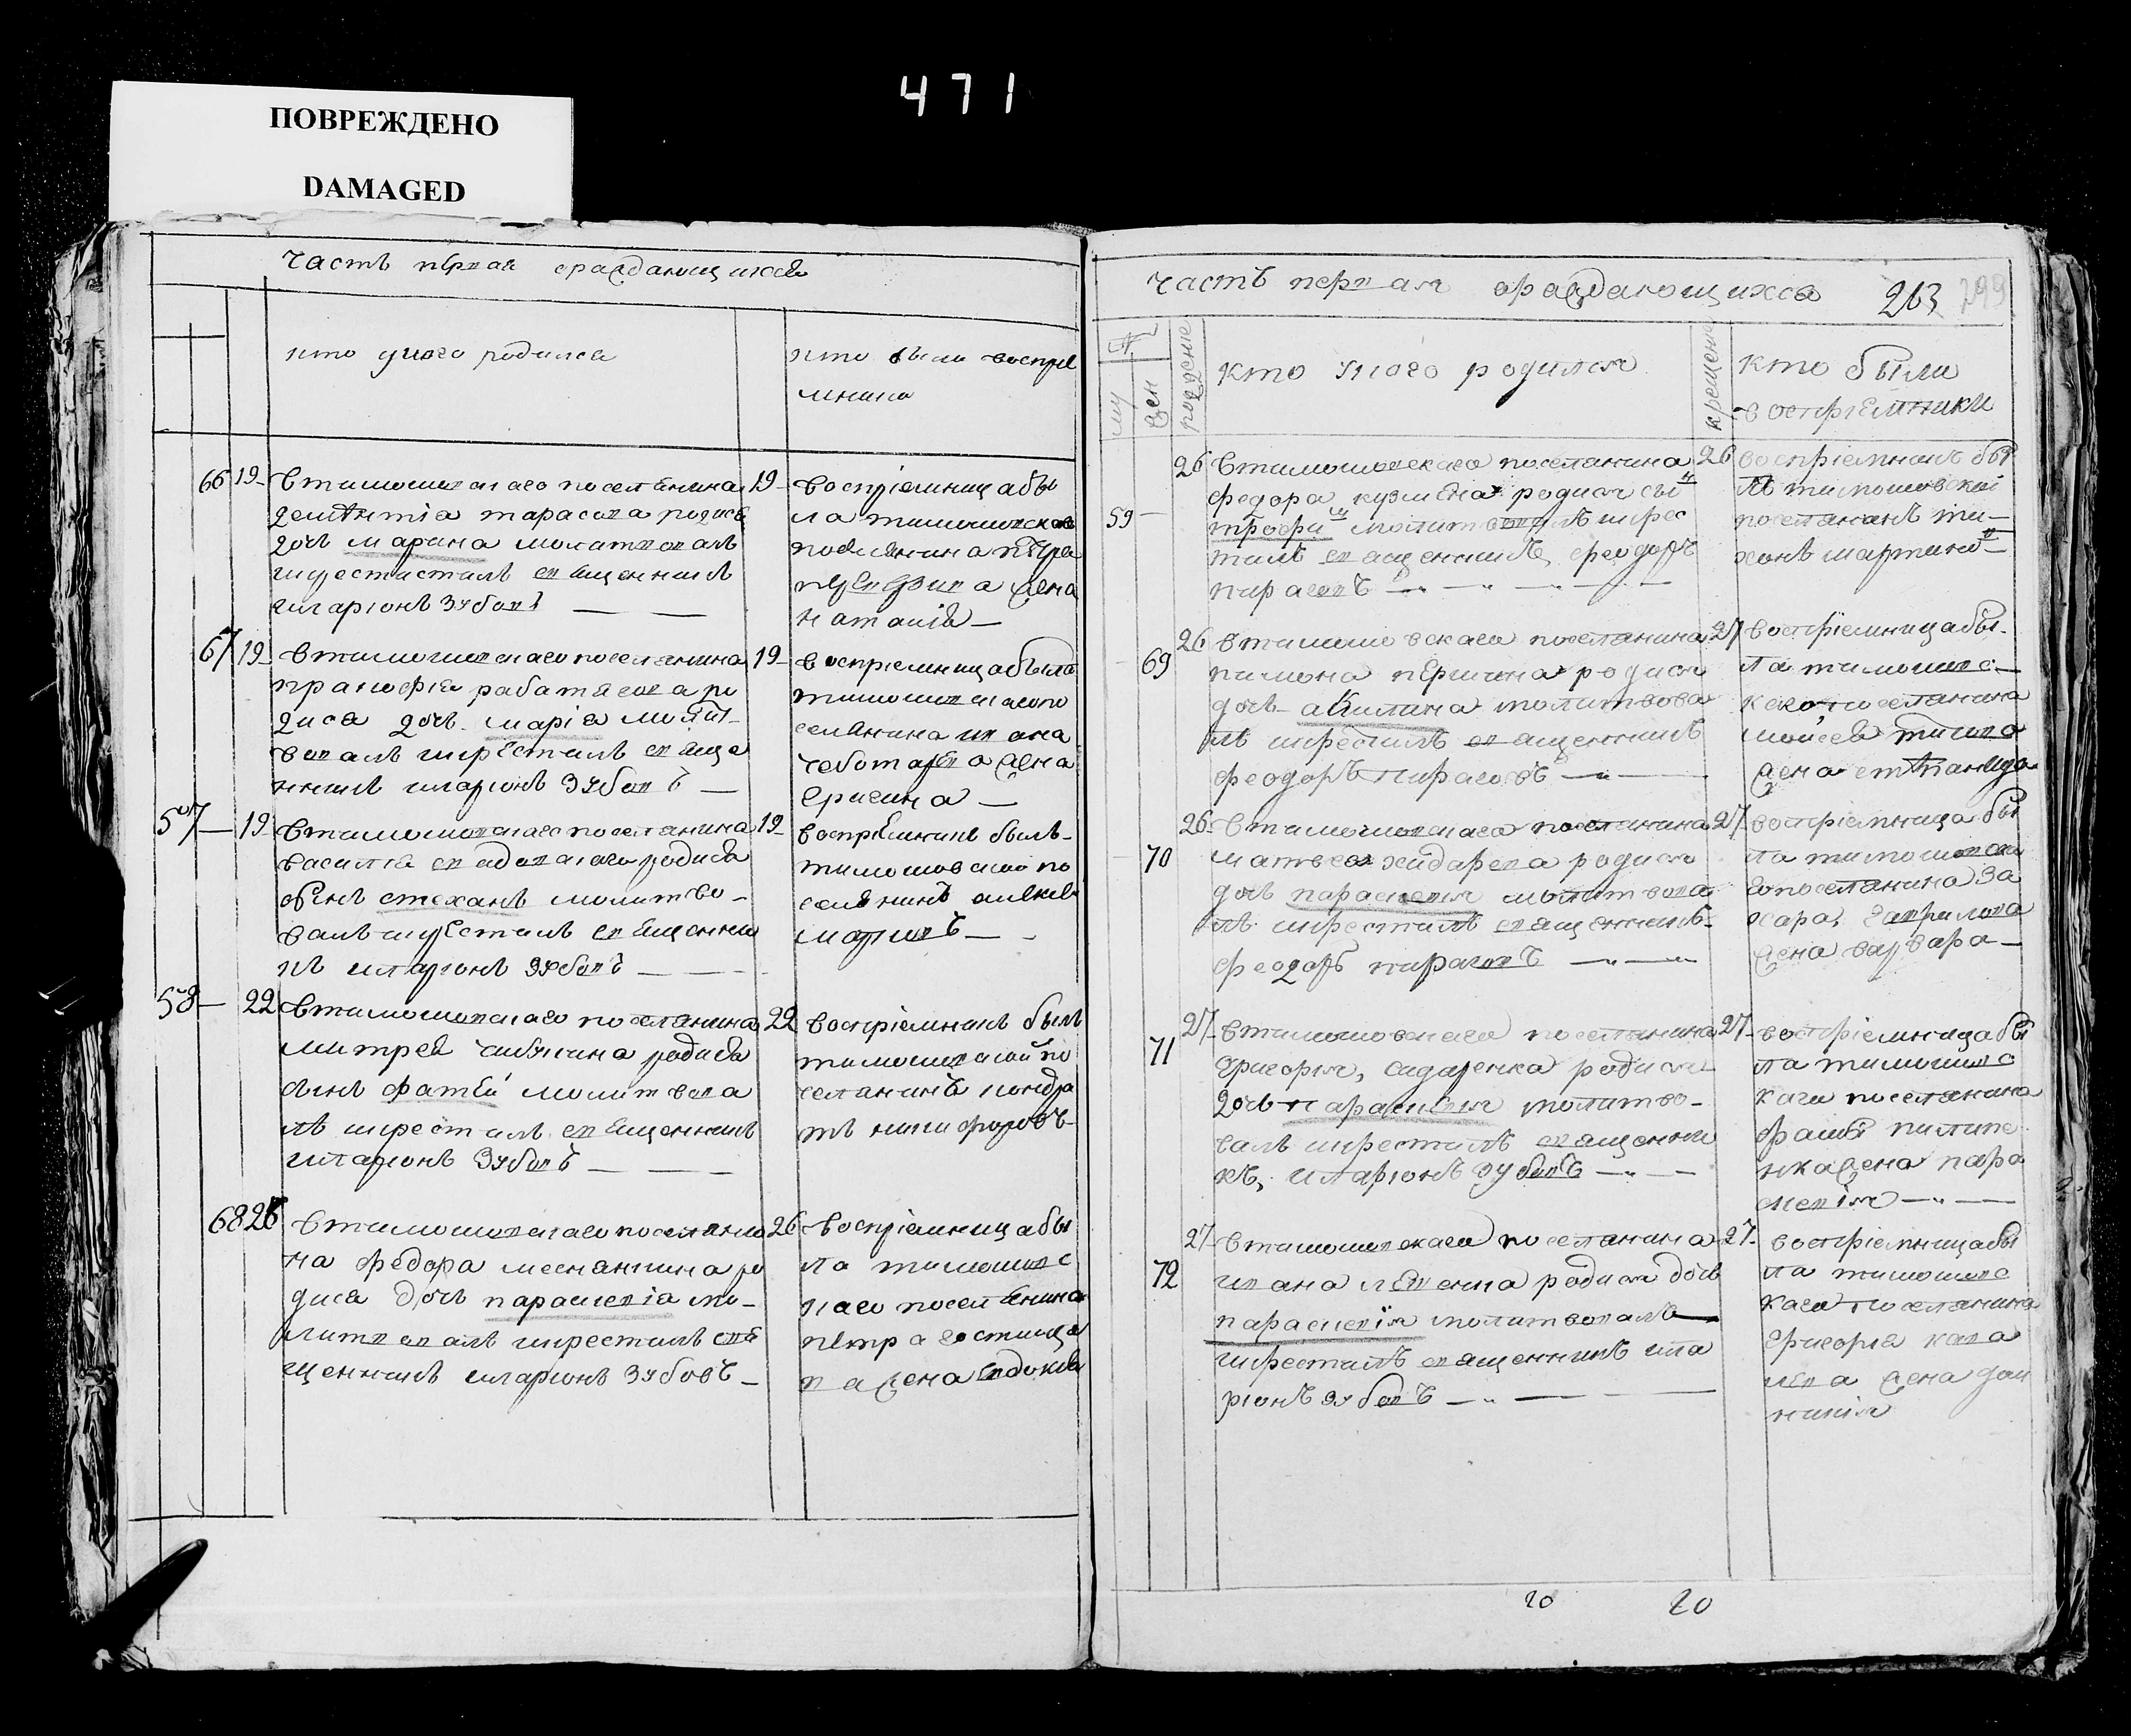 ПОВРЕЖДЕНО
DAMAGED
471
часть первая о раждающихся
кто у кого родился
кто были воспріе
мники
66 19 В тимошовскаго поселянина 19
дементіа тарасова родися
дочь марина молитвовалъ
и крестилъ священникъ
иларіонъ Зубовъ
воспріемница бы
ла тимошовскаго
поселянина
жена
наталія
67 19 В тимошовскаго поселянина 19
прокофія ро
дися дочь марія молит
вовалъ и крестилъ свяще
нникъ иларіонъ Зубовъ
воспріемница была
тимошовскаго по
селянина ивана
чеботарева жена
57 19 В тимошовскаго поселянина 19
василія родися
сынъ стеханъ молитво
валъ и крестилъ священни
къ иларіонъ Зубовъ
воспріемникъ былъ
тимошовской по
селянинъ
58 22 В тимошовскаго поселянина 22
митрея родися
сынъ фатей молитвова
лъ и крестилъ священникъ
иларіонъ Зубовъ
воспріемникъ былъ
тимошовской по
селянинъ кондра
тъ никифоровъ
68 26 В тимошовскаго поселяни 26
на федора ро
дися дочь параскевіа мо
литвовалъ и крестилъ свя
щенникъ иларіонъ Зубовъ
воспріемница бы
ла тимошовс
каго поселянина
петра
жена
часть первая о раждающихся 263 299
рожденіе
кто у кого родился
крещеніе
кто были
воспріемники
59 26 В тимошовскаго поселянина 26
федора кузмена родися сы
нъ молитвовалъ и крес
тилъ священникъ феодоръ
пираговъ
воспріемникъ бы
лъ тимошовской
поселянинъ ти
хонъ мартинов
69 26 В тимошовскаго поселянина 27
пимона першина родися
дочь акилина молитвова
лъ и крестилъ священникъ
феодоръ пираговъ
воспріемница бы
ла тимошовс
каго поселянина
моисея титова
жена степанида
70 26 В тимошовскаго поселянина 27
матвея родися
дочь параскевія молитвова
лъ и крестилъ священникъ
феодоръ пираговъ
воспріемница бы
ла тимошовска
го поселянина за
хара гаврилова
жена варвара
71 27 В тимошовскаго поселянина 27
григорія, сидаренка родися
дочь параскевія молитво
валъ и крестилъ священни
къ, иларіонъ Зубовъ
воспріемница бы
ла тимошовс
каго поселянина
фомы пилипе
нка жена пара
скевія
72 27 В тимошовскаго поселянина 27
ивана родися дочь
параскевія молитвовалъ
и крестилъ священникъ ила
ріонъ Зубовъ
воспріемница бы
ла тимошовс
каго поселянина
григорія
жена дом
никія
20 20